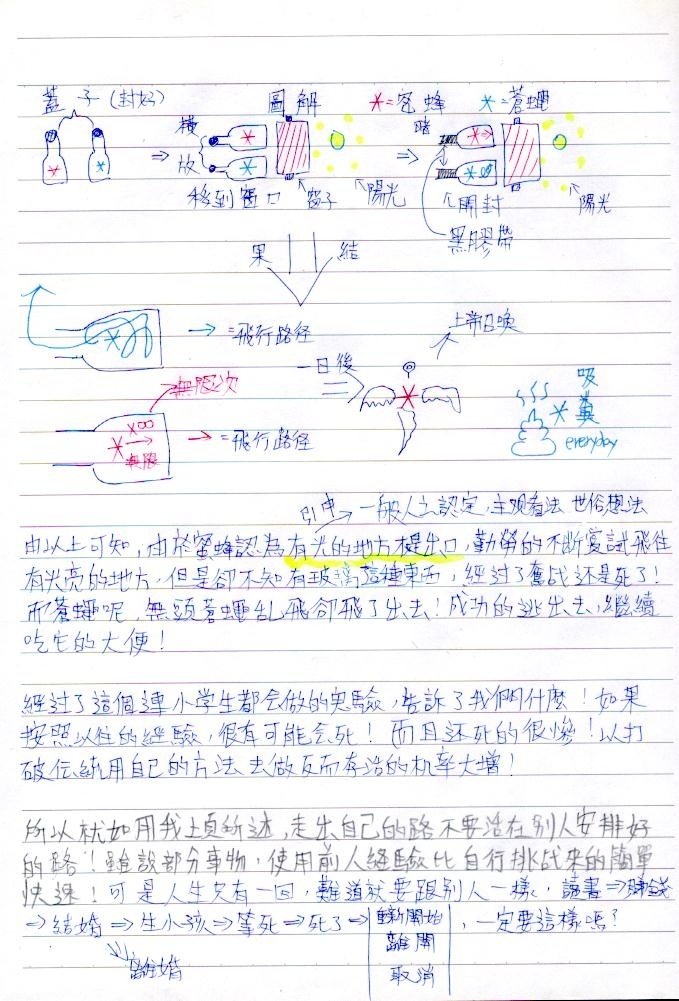 蓋子(封好)
圖解
*=蜜蜂 *=蒼蠅
橫放
移到窗口
窗子
陽光
暗
開封
黑膠帶
陽光
結果
上帝召喚
→=飛行路径
一日後
無限次
X∞
無限
→=飛行路径
吸糞
everyday
引申→一般人之認定,主观看法 世俗想法
由以上可知,由於蜜蜂認為有光的地方是出口,勤勞的不断嘗試飛往
有光亮的地方,但是卻不知有玻璃這種東西,經过了奮战还是死了!
而蒼蠅呢,無頭蒼蠅乱飛卻飛了出去!成功的逃出去,繼續
吃它的大便!
經过了這個連小学生都会做的实驗,告訴了我們什麼!如果
按照以往的經驗,很有可能会死!而且还死的很慘!以打
破传統用自己的方法去做反而存活的机率大增!
所以就如用我上頁所述,走出自己的路不要活在别人安排好
的路!雖說部分事物,使用前人經驗比自行挑战來的簡單
快速!可是人生只有一回,難道就要跟别人一樣,讀書⇒賺錢
⇒結婚⇒生小孩⇒等死⇒死了⇒重新開始,一定要這樣嗎?
離開
離婚
取消